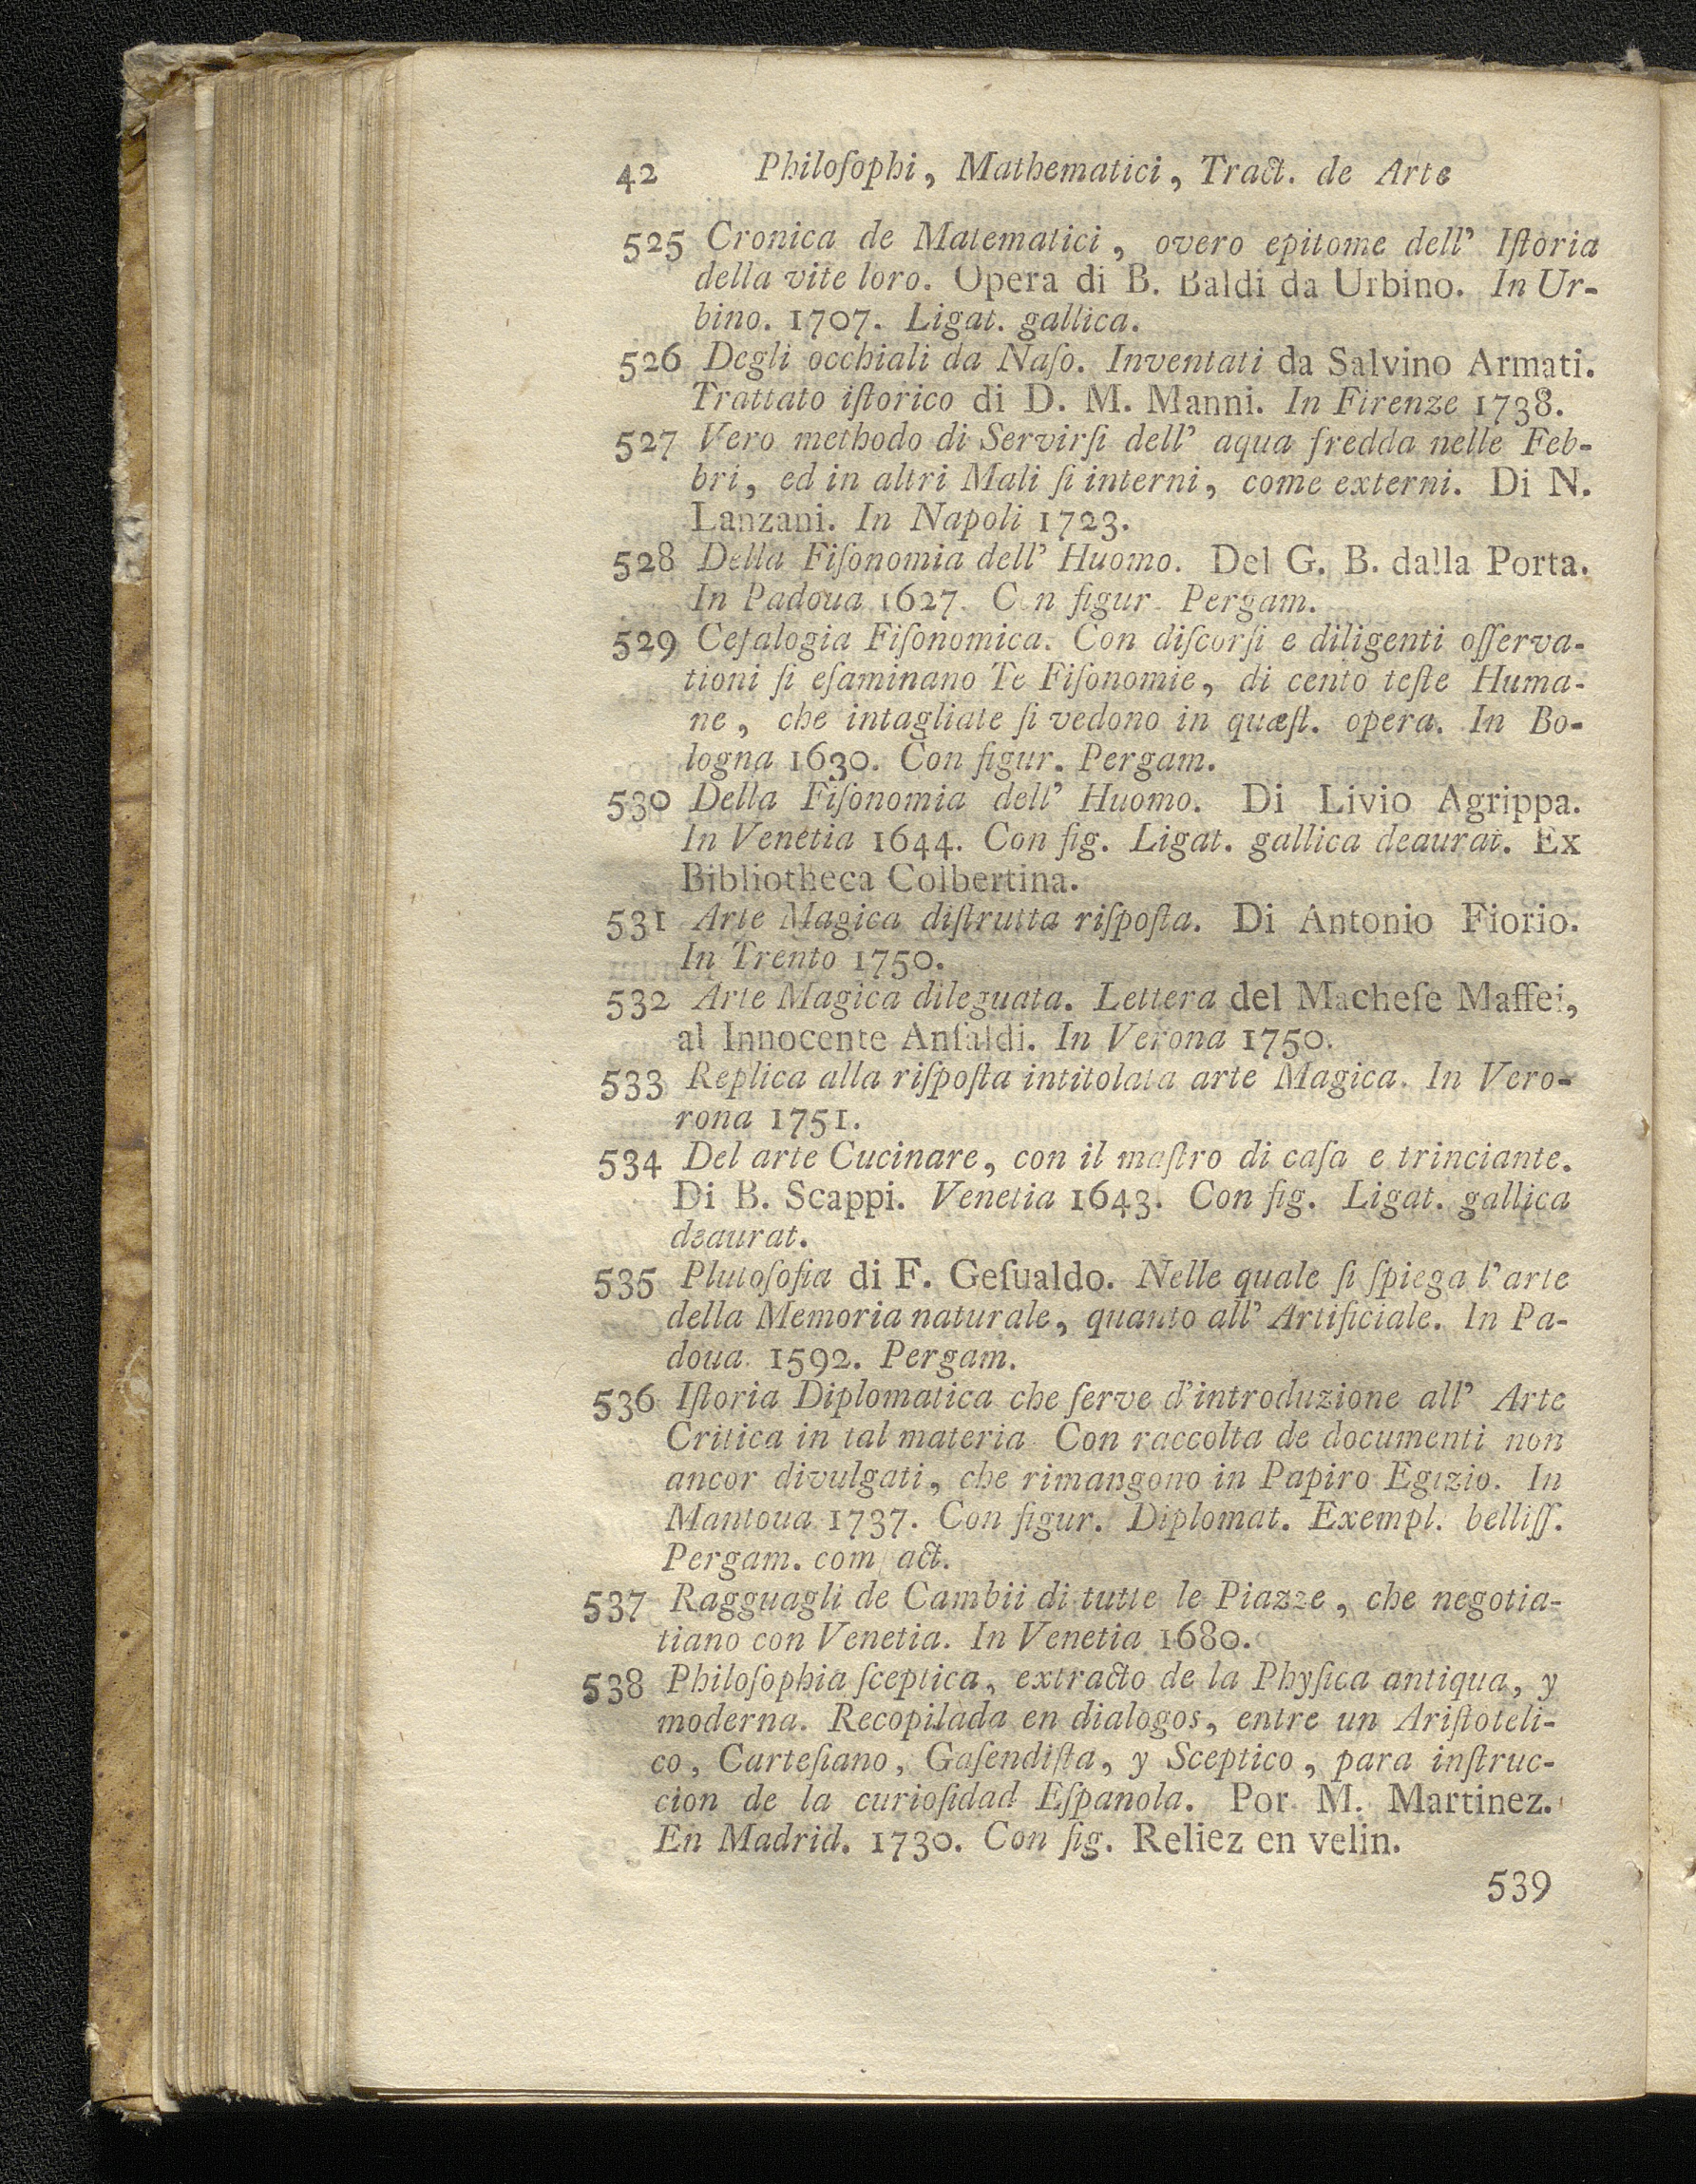 42 Philoſophi, Mathematici, Tract. de Arte
525 Cronica de Matematici, overo epitome dell' Iſtoria
della vite loro. Opera di B. Baldi da Urbino. In Ur-
bino. 1707. Ligat. gallica.
526 Degli occhiali da Naſo. Inventati da Salvino Armati.
Trattato iſtorico di D. M. Manni. In Firenze 1738.
527 Vero methodo di Servirſi dell' aqua fredda nelle Feb-
bri, ed in altri Mali ſi interni, come externi. Di N.
Lanzani. In Napoli 1723.
528 Della Fiſonomia dell' Huomo. Del G. B. dalla Porta.
In Padoua 1627. Con figur. Pergam.
529 Cefalogia Fiſonomica. Con diſcorſi e diligenti oſſerva-
tioni ſi eſaminano Te Fiſonomie, di cento teſte Huma-
ne, che intagliate ſi vedono in quæſt. opera. In Bo-
logna 1630. Con figur. Pergam.
530 Della Fiſonomia dell' Huomo. Di Livio Agrippa.
In Venetia 1644. Con fig. Ligat. gallica deaurat. Ex
Bibliotheca Colbertina.
531 Arte Magica diſtrutta riſpoſta. Di Antonio Fiorio.
In Trento 1750.
532 Arte Magica dileguata. Lettera del Macheſe Maffei,
al Innocente Anſaldi. In Verona 1750.
533 Replica alla riſpoſta intitolata arte Magica. In Vero-
rona 1751.
534 Del arte Cucinare, con il maſtro di caſa e trinciante.
Di B. Scappi. Venetia 1643. Con fig. Ligat. gallica
deaurat.
535 Plutoſofia di F. Geſualdo. Nelle quale ſi ſpiega l'arte
della Memoria naturale, quanto all' Artificiale. In Pa-
doua. 1592. Pergam.
536 Iſtoria Diplomatica che ſerve d'introduzione all' Arte
Critica in tal materia Con raccolta de documenti non
ancor divulgati, che rimangono in Papiro Egizio. In
Mantoua 1737. Con figur. Diplomat. Exempl. belliſſ.
Pergam. compact.
537 Ragguagli de Cambii di tutte le Piazze, che negotia-
tiano con Venetia. In Venetia 1680.
538 Philoſophia ſceptica, extracto de la Phyſica antiqua, y
moderna. Recopilada en dialogos, entre un Ariſtoteli-
co, Carteſiano, Gaſendiſta, y Sceptico, para inſtruc-
cion de la curioſidad Eſpanola. Por M. Martinez.
En Madrid. 1730. Con fig. Reliez en velin.
539